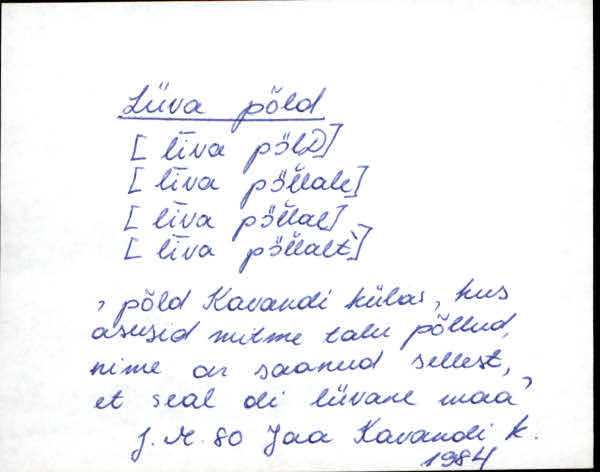 Liiva põld
[ līva pöĺD]
[ līva pöĺlale]
[ līva pöĺlal]
[ līva pöĺlalt]
, põld Kavandi külas, kus
asusid mitme talu põllud,
nime on saanud sellest,
et seal oli liivane maa,
J. M. 80 Jaa Kavandi k.
1984